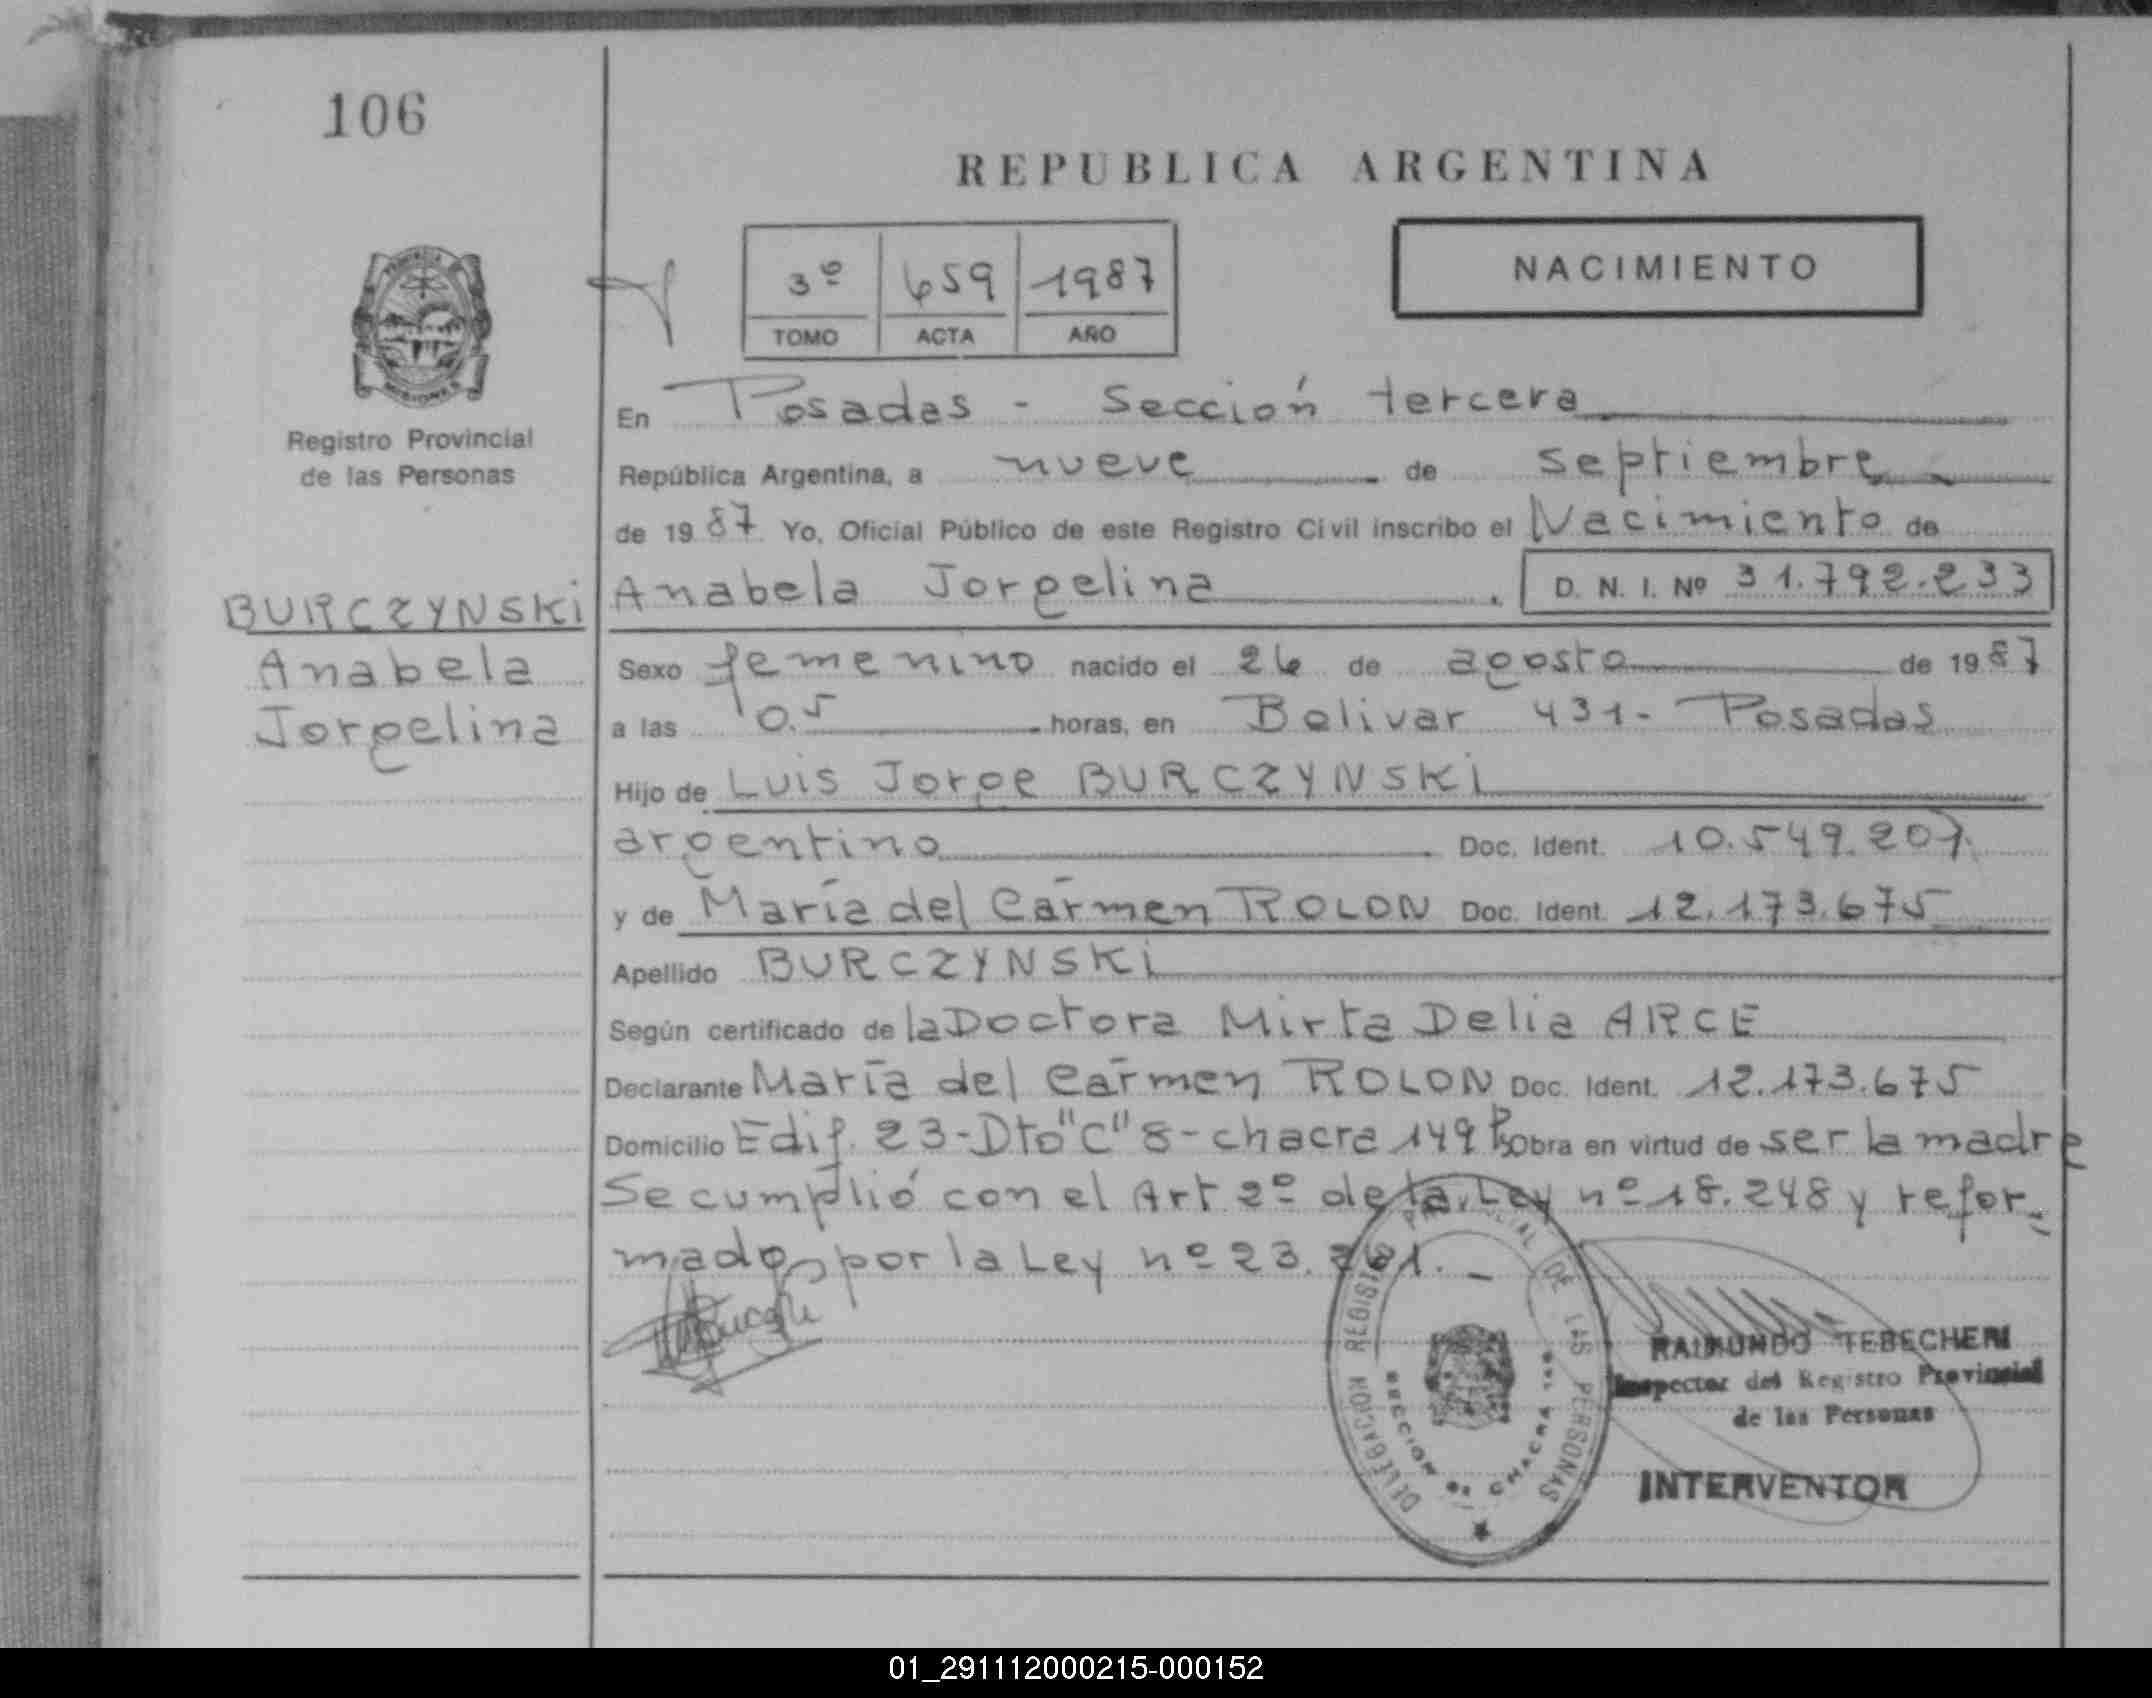 106
REPUBLICA ARGENTINA
3º 659 1987
TOMO ACTA AÑO
NACIMIENTO
Registro Provincial
de las Personas
En Posadas - Sección tercera
República Argentina, a nueve de septiembre
de 1987 Yo, Oficial Público de este Registro Civil inscribo el Nacimiento de
Anabela Jorgelina D. N. I. Nº 31.792.233
BURCZYNSKI
Anabela
Jorgelina
Sexo femenino nacido el 26 de agosto de 1987
a las 0.5 horas, en Bolivar 431- Posadas
Hijo de Luis Jorge BURCZYNSKI
argentino Doc. Ident. 10.549.207.
y de María del Carmen ROLON Doc. Ident. 12.173.675
Apellido BURCZYNSKI
Según certificado de la Doctora Mirta Delia ARCE
Declarante María del Carmen ROLON Doc. Ident. 12.173.675
Domicilio Edif. 23-Dto"C" 8-chacra 149 Obra en virtud de ser la madre
Se cumplió con el Art 2º de la Ley nº 18.248 y refor-
mado por la Ley nº 23.261.
DELEGACION REGISTRO PROVINCIAL DE LAS PERSONAS
SECCION DE CHACRA
RAIMUNDO TEBECHERI
Inspector del Registro Provincial
de las Personas
INTERVENTOR
01_291112000215-000152